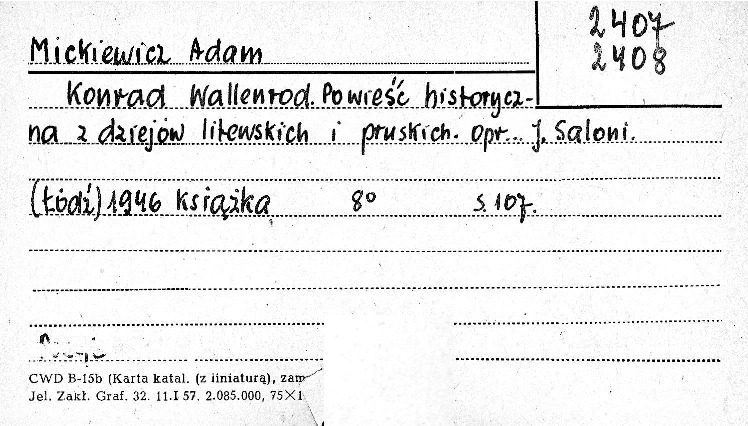 2407
2408
Mickiewicz Adam
Konrad Wallenrod. Powieść historycz-
na z dziejów litewskich i pruskich. opr. J. Saloni.
(Łódź) 1946 książka 8° s. 107.
CWD B-15b (Karta katal. (z liniaturą), zam
Jel. Zakł. Graf. 32. 11.I 57. 2.085.000, 75×1